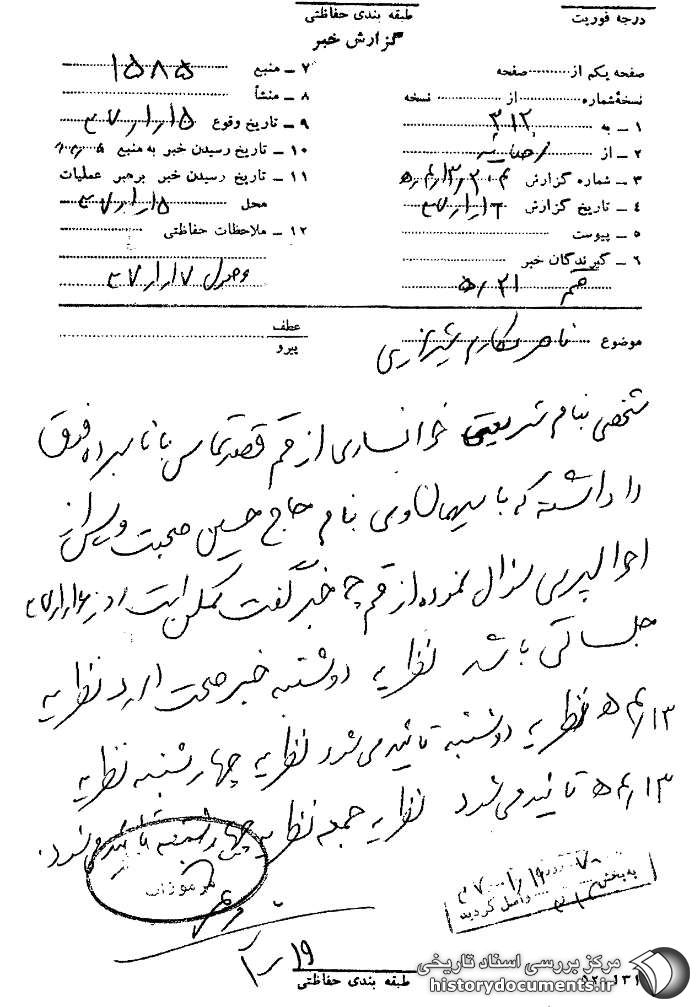 درجه فوریت
طبقه بندی حفاظتی
گزارش خبر
صفحه یکم از صفحه
نسخهٔ شماره از نسخه
۱ ـ به ۳۱۲
۲ ـ از
۳ ـ شماره گزارش
۴ ـ تاریخ گزارش
۵ ـ پیوست
۶ ـ گیرندگان خبر
قم ۲۱ ر ۵
۷ ـ منبع ۱۵۸۵
۸ ـ منشأ
۹ ـ تاریخ وقوع ۱۵ر۱ر۳۷
۱۰ ـ تاریخ رسیدن خبر به منبع
۱۱ ـ تاریخ رسیدن خبر برهبر عملیات
محل ۱۵ر۱ر۳۷
۱۲ ـ ملاحظات حفاظتی
وصول ۱۷ر۱ر۳۷
موضوع ناصر مکارم شیرازی
عطف
پیرو
شخصی بنام شریعتی خوانساری از قم قصد تماس با نامبرده فوق
را داشته که با میهمان وی بنام حاج حسین صحبت و پس از
احوالپرسی سئوال نموده از قم چه خبر گفت ممکن است روز
جلساتی باشد نظریه دوشنبه خبر صحت دارد نظریه
۱۳ر۵ﻫ نظریه دوشنبه تائید میشود نظریه چهارشنبه نظریه
۱۳ر۵ﻫ تائید میشود نظریه جمعه نظریه چهارشنبه تائید میشود.
مرموزات
به بخش ۳۱۲ واصل گردید
۱۹ر۱
طبقه بندی حفاظتی
مرکز بررسی اسناد تاریخی
historydocuments.ir